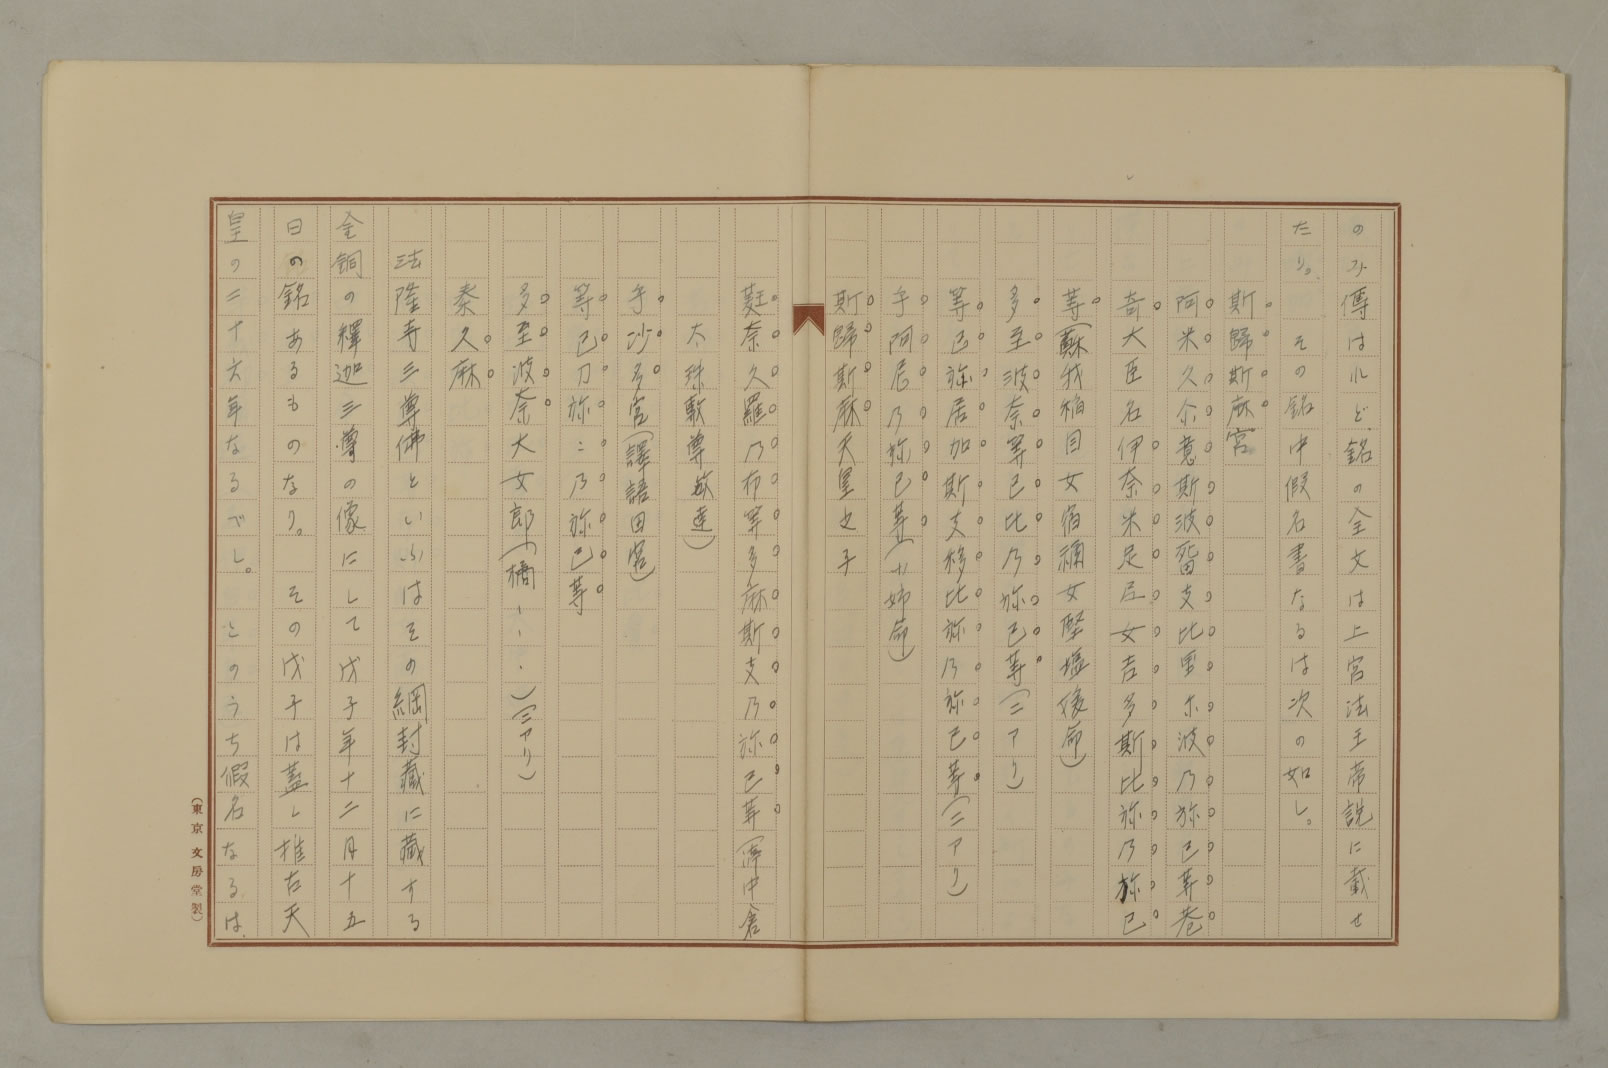 のみ傳はれど、銘の全文は上宮法王帝説に載せ
たり。その銘中假名書なるは次の如し。
斯歸斯麻宮
阿米久尒意斯波留支比里尒波乃弥己等巷
奇大臣名伊奈米足尼女吉多斯比弥乃弥己
等(蘇我稲目女宿禰女堅塩媛命)
多至波奈等已比乃弥己等(二アリ)
等已弥居加斯支移比弥乃弥己等(二アリ)
乎阿尼乃弥己等(小姉命)
斯歸斯麻天皇之子
蕤奈久羅乃布等多麻斯支乃弥己等(渟中倉
太珠敷尊敏達)
乎沙多宮(譯語田宮)
等已刀弥〻乃弥己等
多至波奈大女郎(橘---)(三アリ)
秦久麻
法隆寺三尊佛といふはその綱封藏に藏する
金銅の釋迦三尊の像にして戊子年十二月十五
日の銘あるものなり。その戊子は蓋し推古天
皇の二十六年なるべし。このうち假名なるは、
(東京文房堂製)